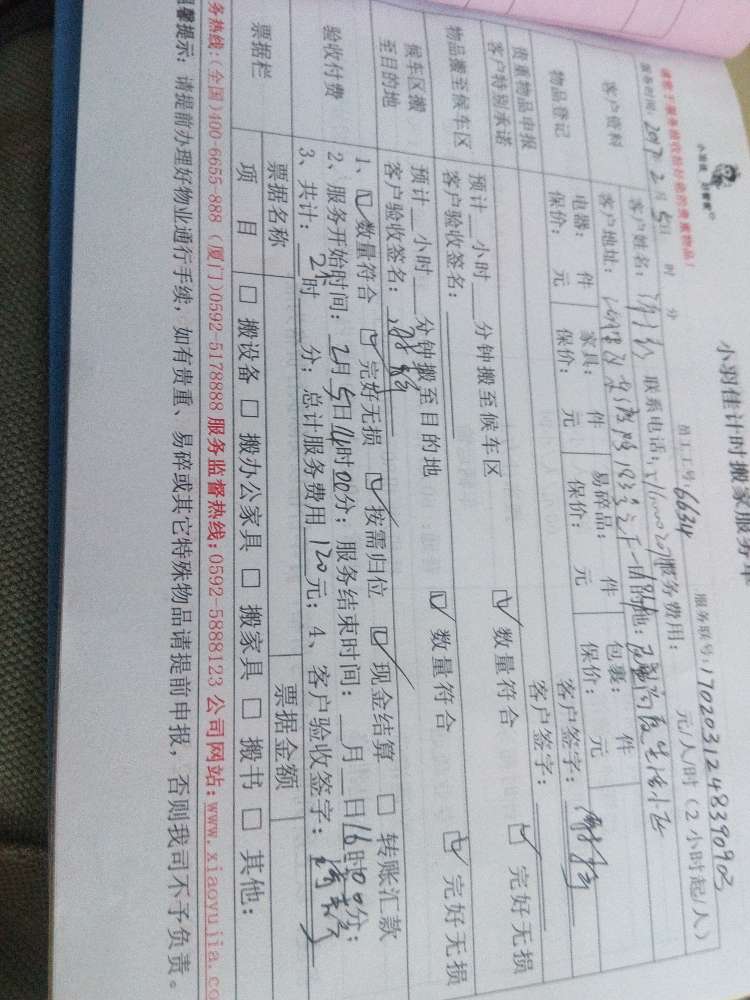 小羽佳计时搬家服务单
小羽佳 好管家
员工工号: 6634
服务联号: 17020312483909
请您于服务前收拾好您的贵重物品!
服务时间: 2017. 2月 5日 时 分
服务费用: 元/人/时(2小时起/人)
客户资料
客户姓名:
联系电话:
客户地址:
目的地:
物品登记
电器: 件 家具: 件 易碎品: 件 包裹: 件
保价: 元 保价: 元 保价: 元 保价: 元
贵重物品申报
客户签字:
客户特别承诺
客户签字:
物品搬至候车区
预计__小时__分钟搬至候车区 ☑ 数量符合 ☑ 完好无损
客户验收签名:
候车区搬至目的地
预计__小时__分钟搬至目的地 ☑ 数量符合 ☑ 完好无损
客户验收签名:
验收付费
1、☑ 数量符合 ☑ 完好无损 ☑ 按需归位 ☑ 现金结算 □ 转账汇款
2、服务开始时间: 2月5日14时00分; 服务结束时间: __月__日16时00分;
3、共计: 2时__分; 总计服务费用120元; 4、客户验收签字:
票据栏
票据名称
票据金额
项 目 □ 搬设备 □ 搬办公家具 □ 搬家具 □ 搬书 □ 其他:
务热线:(全国)400-6655-888 (厦门)0592-5178888 服务监督热线:0592-5888123 公司网站:www.xiaoyujia.co
馨提示: 请提前办理好物业通行手续, 如有贵重、易碎或其它特殊物品请提前申报, 否则我司不予负责。